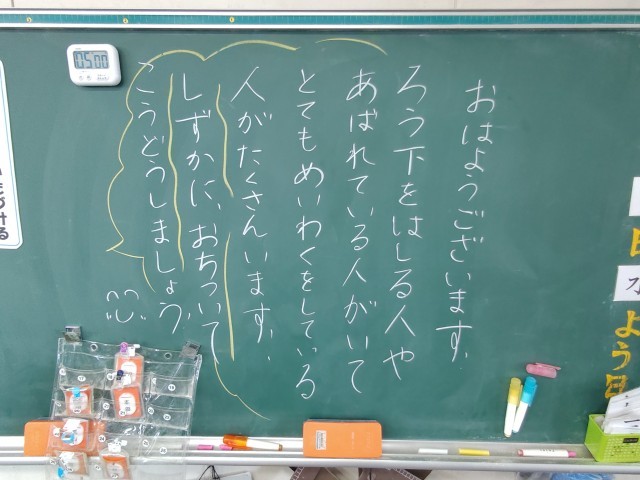 おはようございます。
ろう下をはしる人や
あばれている人がいて
とてもめいわくをしている
人がたくさんいます。
しずかに、おちついて
こうどうしましょう。
05:00
水
よう日